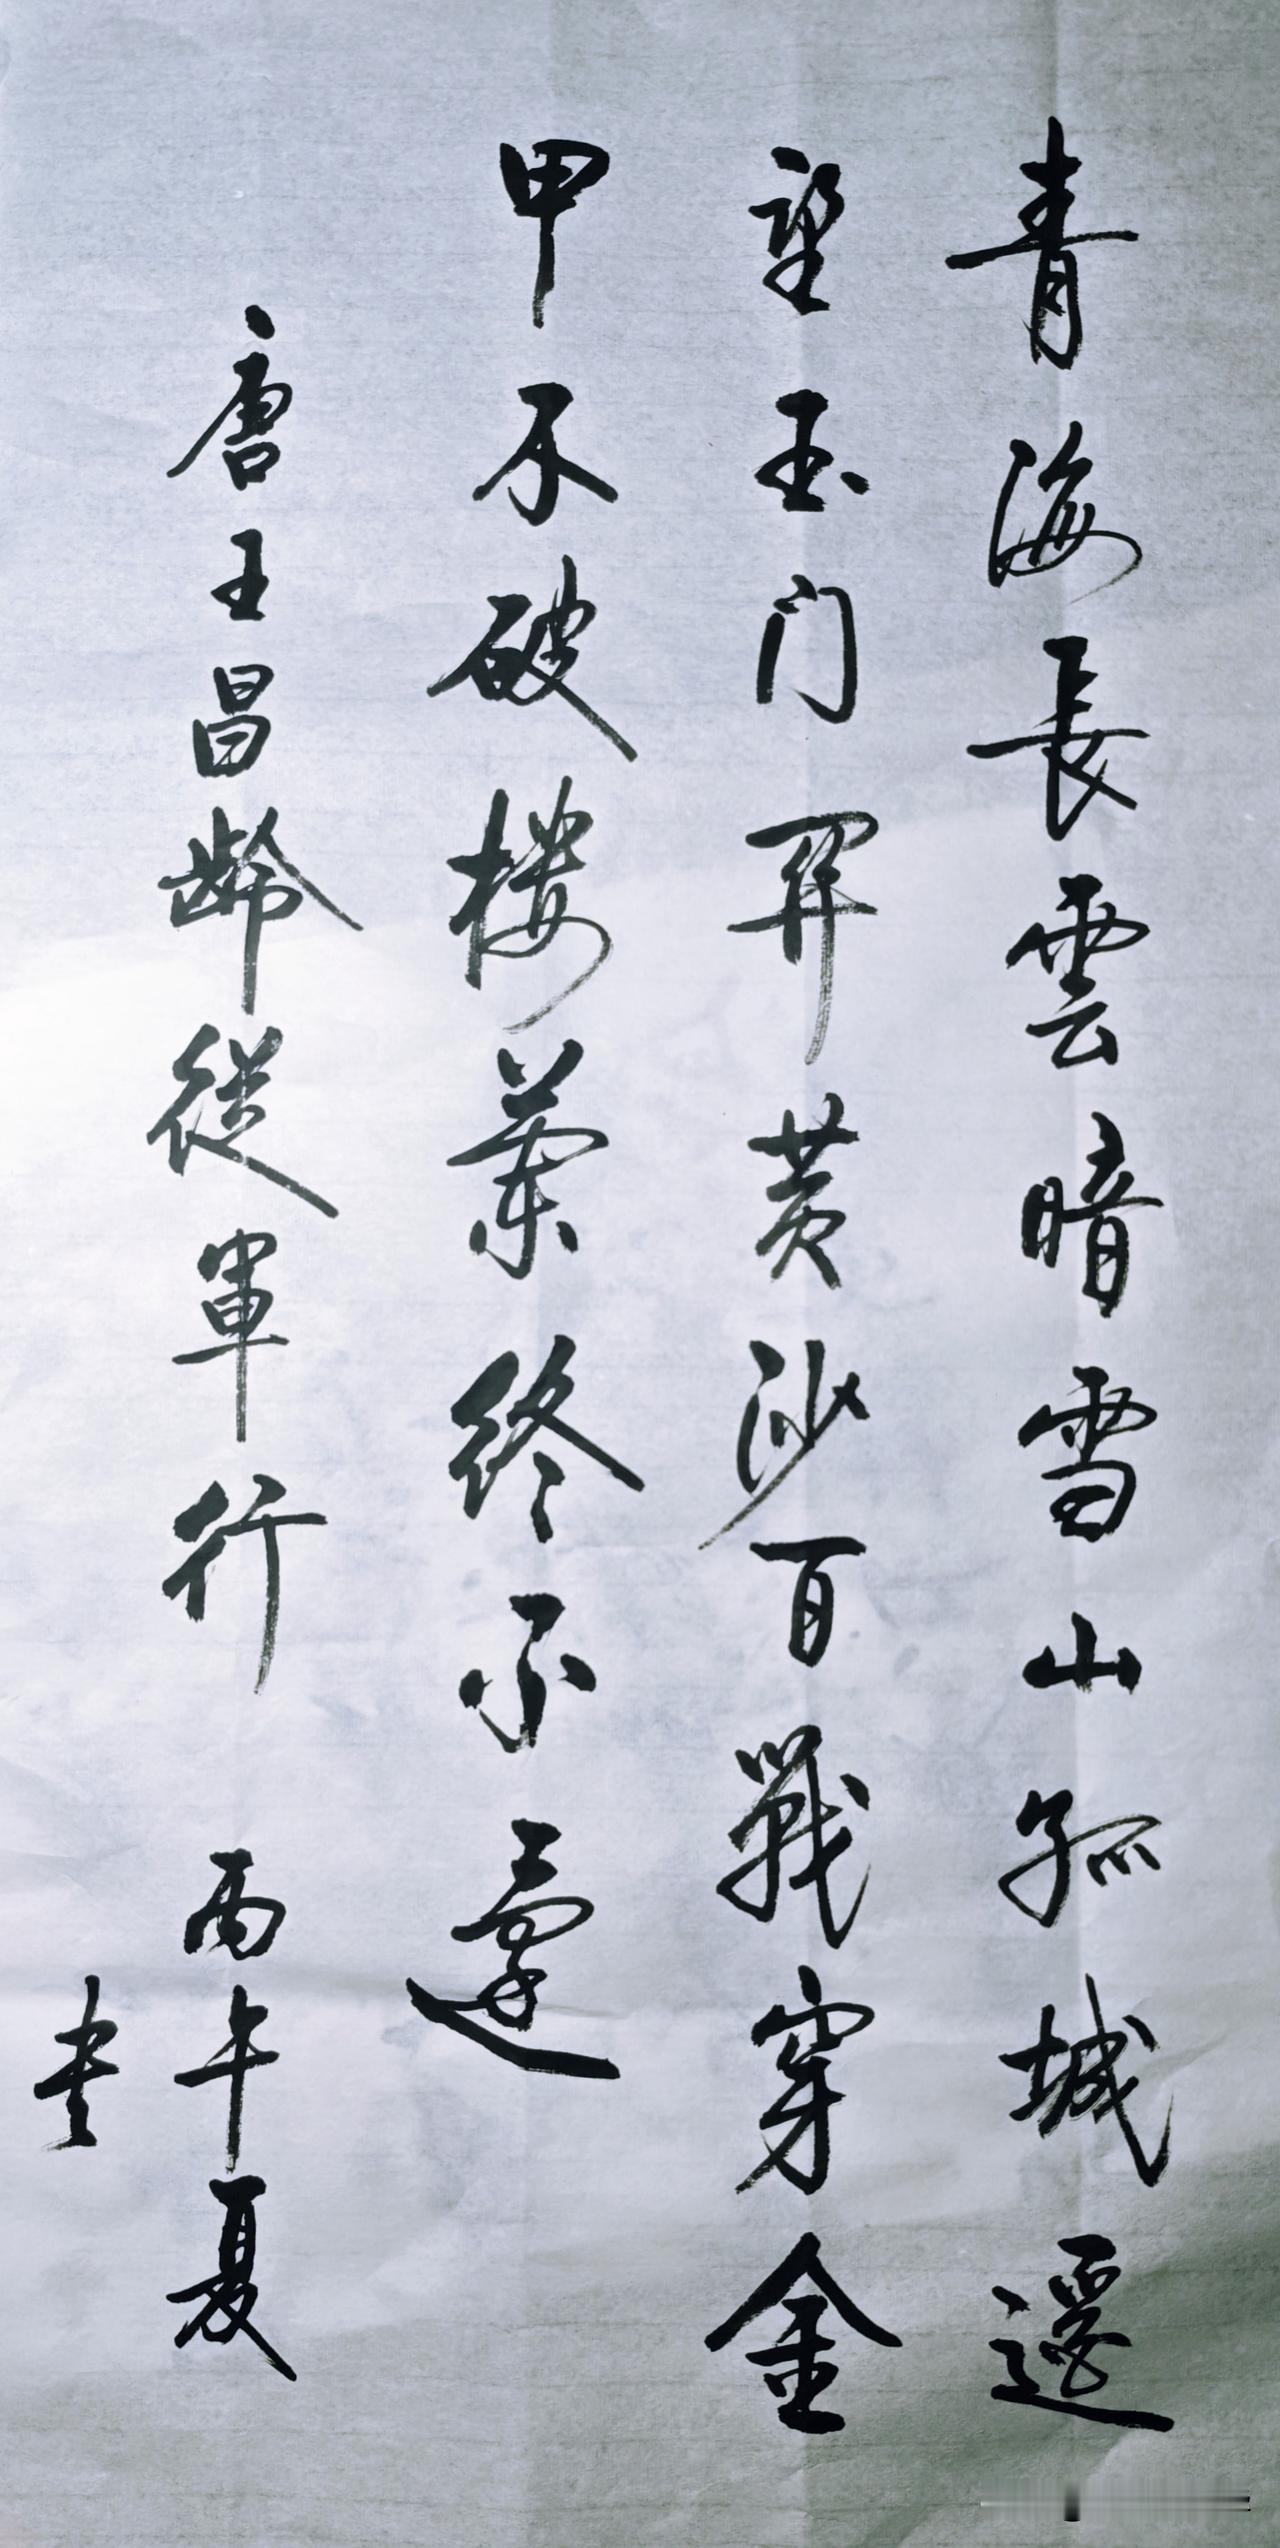 青海長雲暗雪山孤城遥
望玉门關黄沙百戰穿金
甲不破楼蘭终不還
唐王昌龄從軍行 丙午夏
书